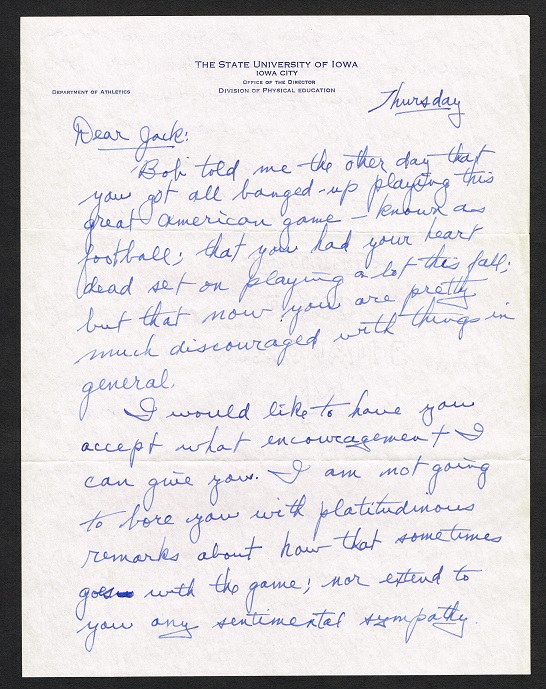 THE STATE UNIVERSITY OF IOWA
IOWA CITY
OFFICE OF THE DIRECTOR
DEPARTMENT OF ATHLETICS
DIVISION OF PHYSICAL EDUCATION
Thursday
Dear Jack:
Bob told me the other day that
you got all banged-up playing this
great american game - known as
football; that you had your heart
dead set on playing a lot this fall;
but that now you are pretty
much discouraged with things in
general.
I would like to have you
accept what encouragement I
can give you. I am not going
to bore you with platitudinous
remarks about how that sometimes
goes with the game; nor extend to
you any sentimental sympathy.